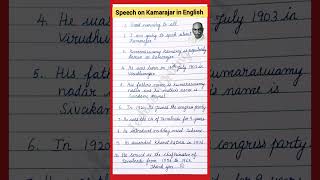 Speech on Kamarajar in English
1. Good morning to all.
2. I am going to speak about Kamarajar
3. Kumaraswamy Kamaraj is popularly known as Kamarajar
4. He was born in 15th July 1903 in Virudhunagar.
5. His fathers name is kumaraswamy nadar and his mothers name is Sivakami Ammal
6. In 1920, he joined the congress party
7. He was the CM of Tamilnadu for 9 years.
8. He introduced midday meal scheme
9. He awarded Bharat Ratna in 1976
10. He served as the chief minister of Tamilnadu from 1954 to 1963.
Thank you
4. He was
July 1903 in
Virudhu
5. His fath
umaraswamy
nadar
name is
Sivakam
6. In 1920
ongress party